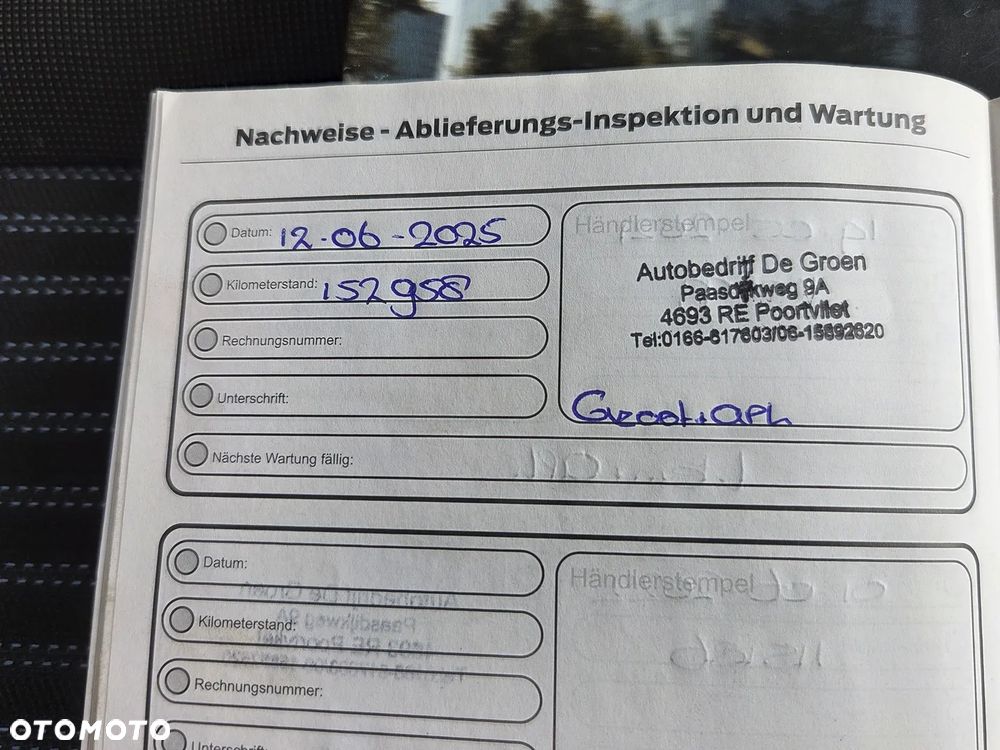 Nachweise - Ablieferungs-Inspektion und Wartung
Datum: 12-06-2025
Kilometerstand: 152958
Rechnungsnummer:
Unterschrift:
Nächste Wartung fällig:
Händlerstempel
Autobedrijf De Groen
Paasdijkweg 9A
4693 RE Poortvliet
Tel:0166-617603/06-15692620
Datum:
Kilometerstand:
Rechnungsnummer:
Unterschrift:
Händlerstempel
OTOMOTO